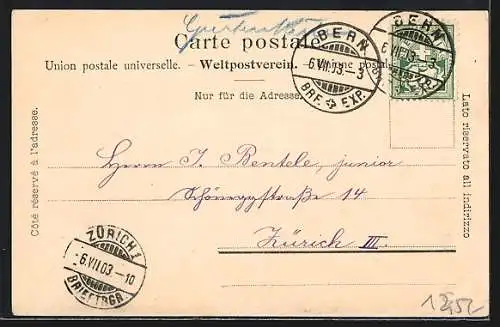 Carte postale.
Union postale universelle. – Weltpostverein. – Unione postale
Nur für die Adresse.
Côté réservé à l'adresse.
Lato riservato all indirizzo
BERN
6.VII.03–3
BRF. EXP.
BERN
6.VII.03–3
EXP.
Herrn J. Bentele, junior
Schöneggstraße 14
Zürich III.
ZÜRICH 1
6.VII.03–10
BRIEFTRGR.